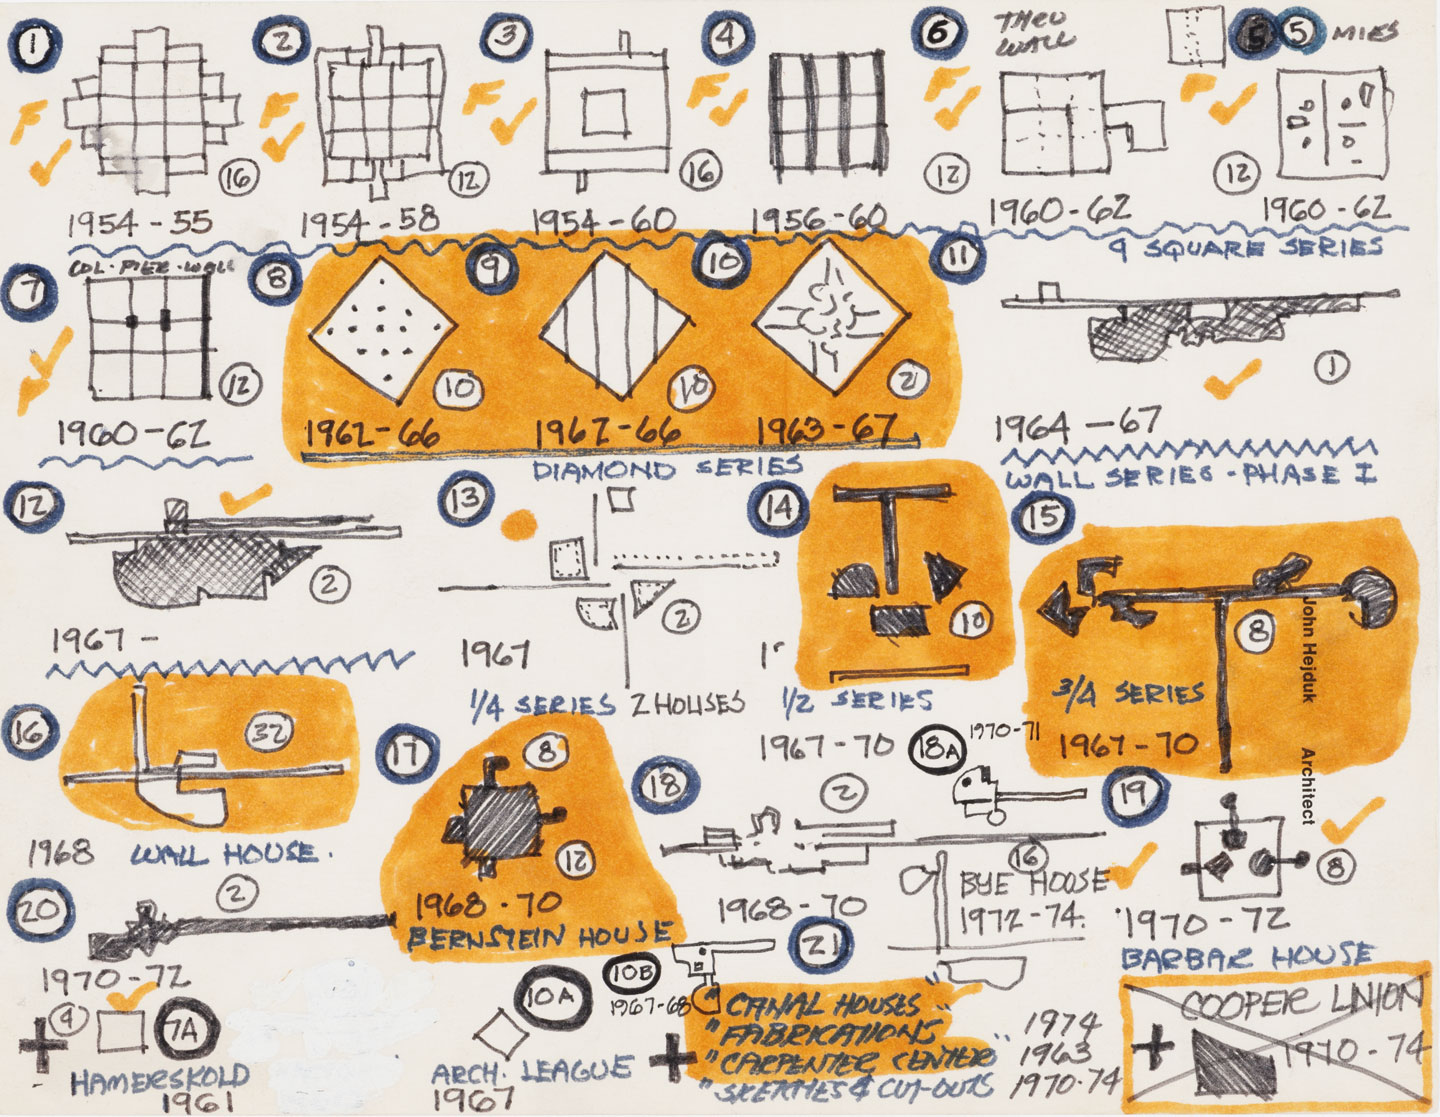 1
2
3
4
6
THRU
WALL
5
5
MIES
F
F
F
F
F
F
16
12
16
12
12
1954-55
1954-58
1954-60
1956-60
1960-62
1960-62
9 SQUARE SERIES
7
COL. PIER. WALL
8
9
10
11
F
12
10
10
2
1
1960-62
1962-66
1962-66
1963-67
1964-67
DIAMOND SERIES
WALL SERIES - PHASE I
12
13
14
15
2
2
10
8
1967-
1967
1/4 SERIES 2 HOUSES
1/2 SERIES
1967-70
3/4 SERIES
1967-70
John Hejduk Architect
16
32
1968 WALL HOUSE.
17
8
12
1968-70
BERNSTEIN HOUSE
18
2
1968-70
18A
1970-71
16
BYE HOUSE
1972-74.
19
8
1970-72
BARBAR HOUSE
20
2
1970-72
4
7A
HAMERSKOLD
1961
10A
ARCH. LEAGUE
1967
10B
1967-68
21
"CANAL HOUSES"
"FABRICATIONS
"CARPENTER CENTER"
"SKETCHES & CUT-OUTS
1974
1963
1970-74
COOPER UNION
1970-74